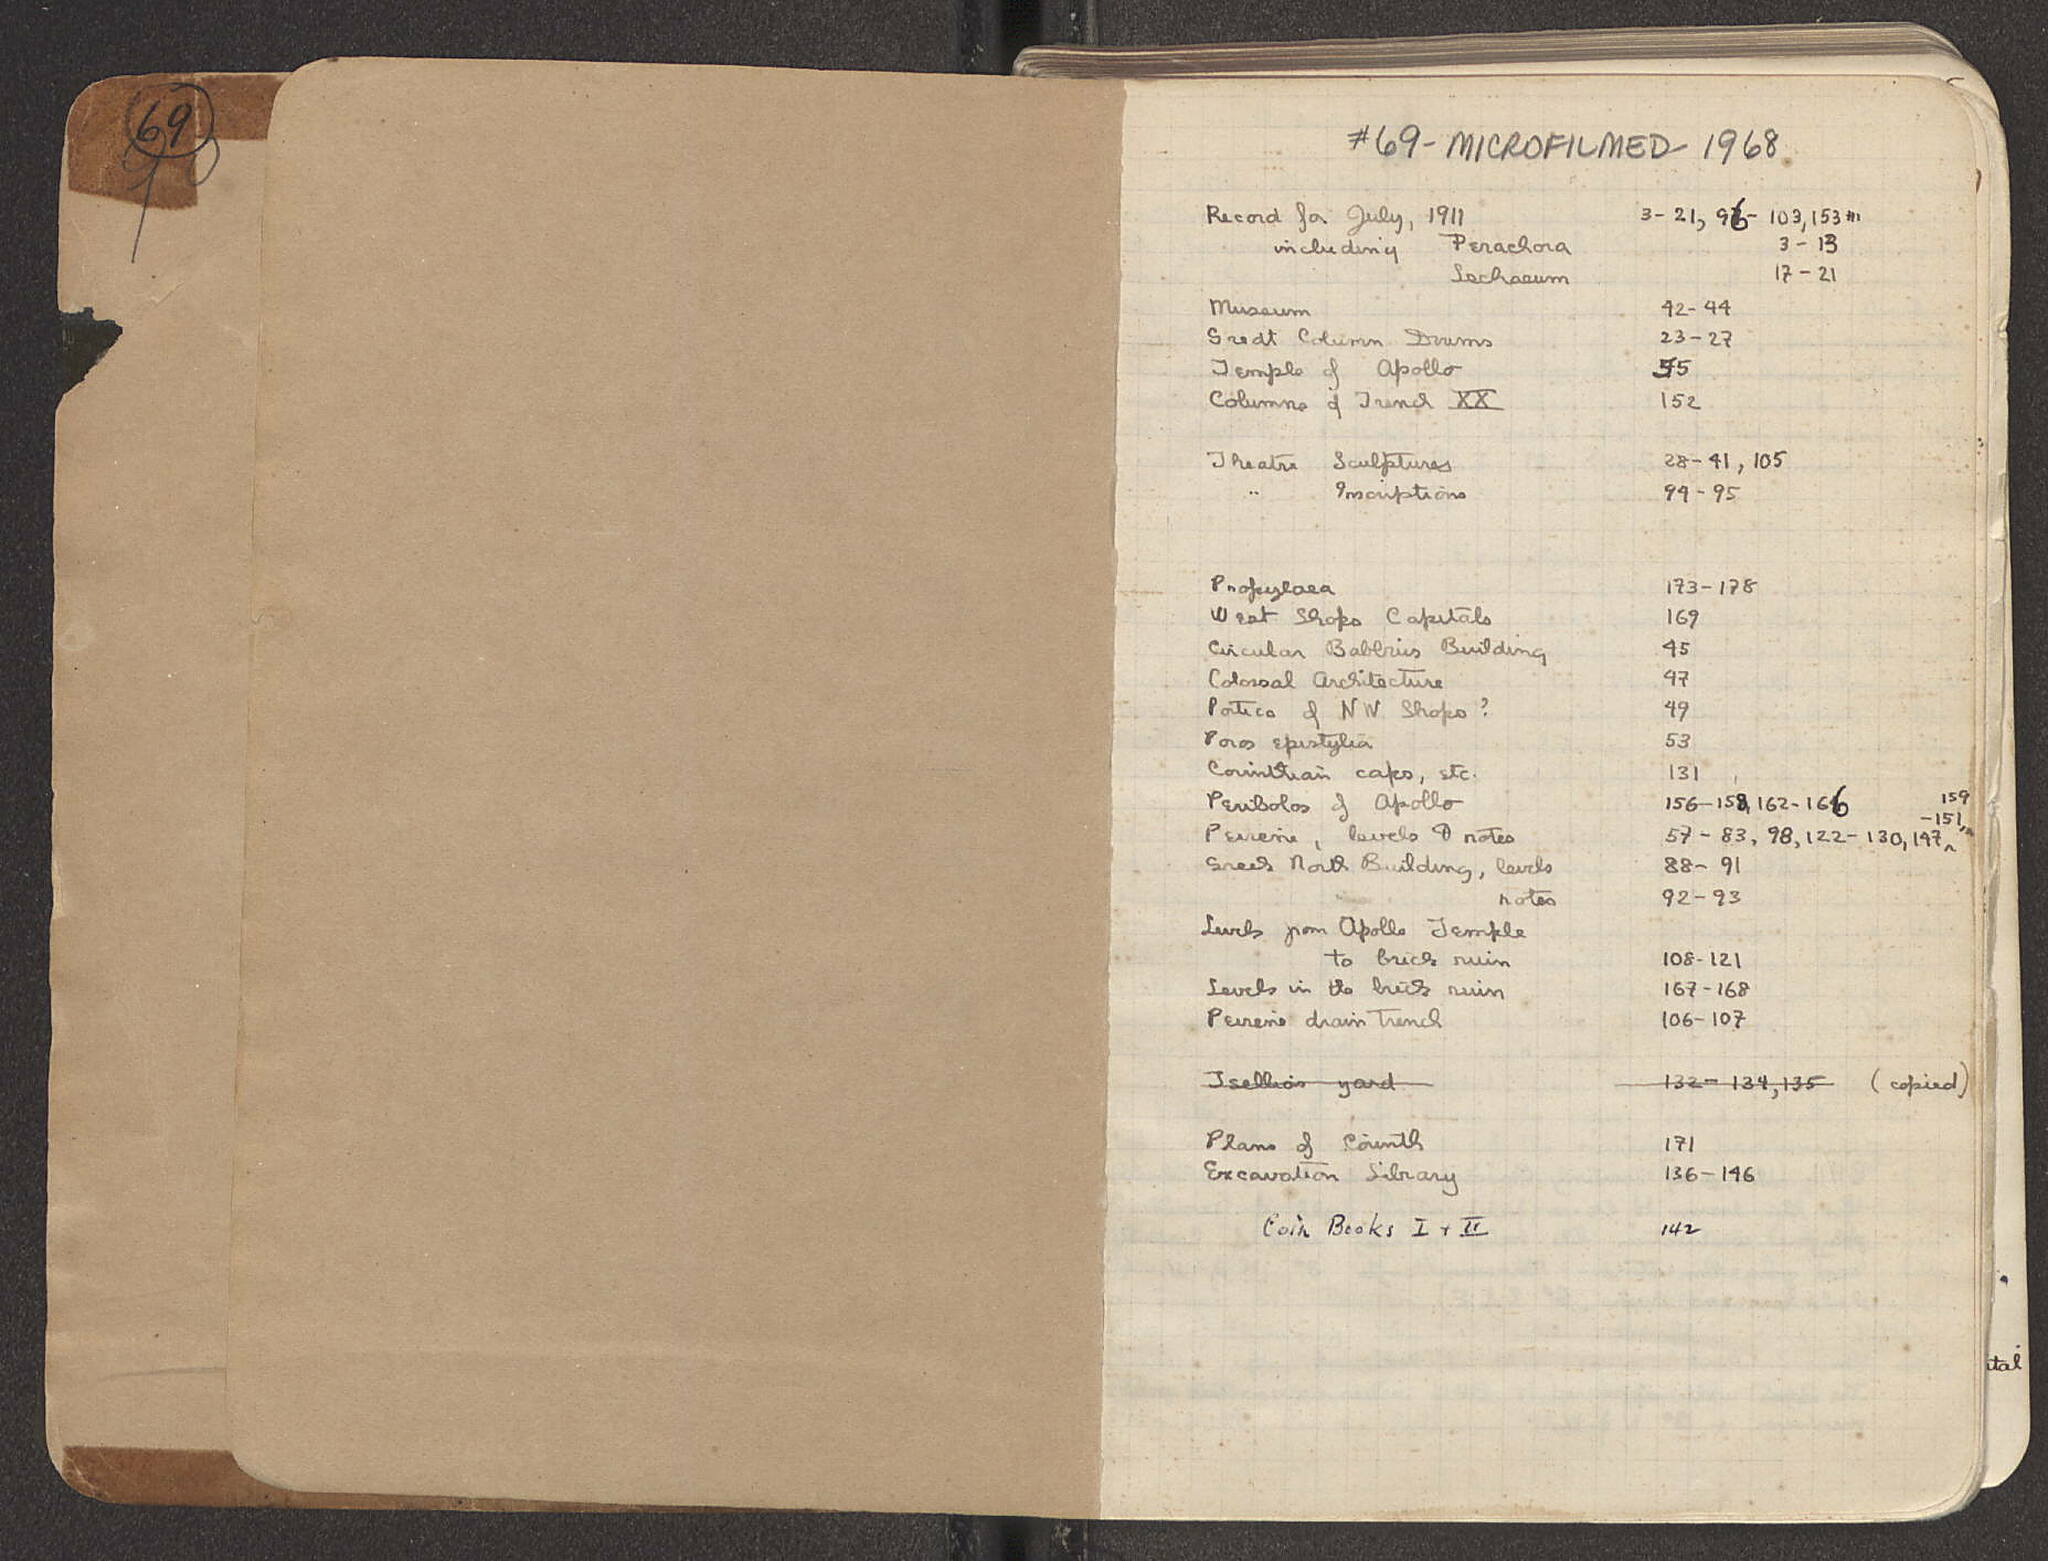 69
#69 - MICROFILMED - 1968
Record for July, 1911 3-21, 96-103, 153
including Perachora 3-13
Lechaeum 17-21
Museum 42-44
Great Column Drums 23-27
Temple of Apollo 55
Columns of Trench XX 152
Theatre Sculptures 28-41, 105
" Inscriptions 94-95
Propylaea 173-178
West Shops Capitals 169
Circular Babbius Building 45
Colossal Architecture 47
Portico of NW Shops? 49
Poros epistylia 53
Corinthian caps, etc. 131
Peribolos of Apollo 156-158, 162-166
159
Peirene, levels & notes 57-83, 98, 122-130, 147 -151,
Greek North Building, levels 88-91
notes 92-93
Levels from Apollo Temple
to brick ruin 108-121
Levels in the brick ruin 167-168
Peirene drain Trench 106-107
Tsellios yard 132-134, 135 (copied)
Plans of Corinth 171
Excavation Library 136-146
Coin Books I + II 142